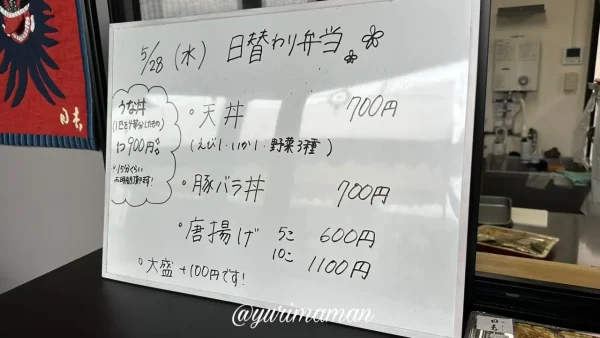 5/28 (水) 日替わり弁当
うな丼
900円
※15分くらい
お時間頂きます!
・天丼 700円
(えび1・いか1・野菜3種)
・豚バラ丼 700円
・唐揚げ 5こ 600円
10こ 1100円
・大盛 +100円です!
@yurimaman